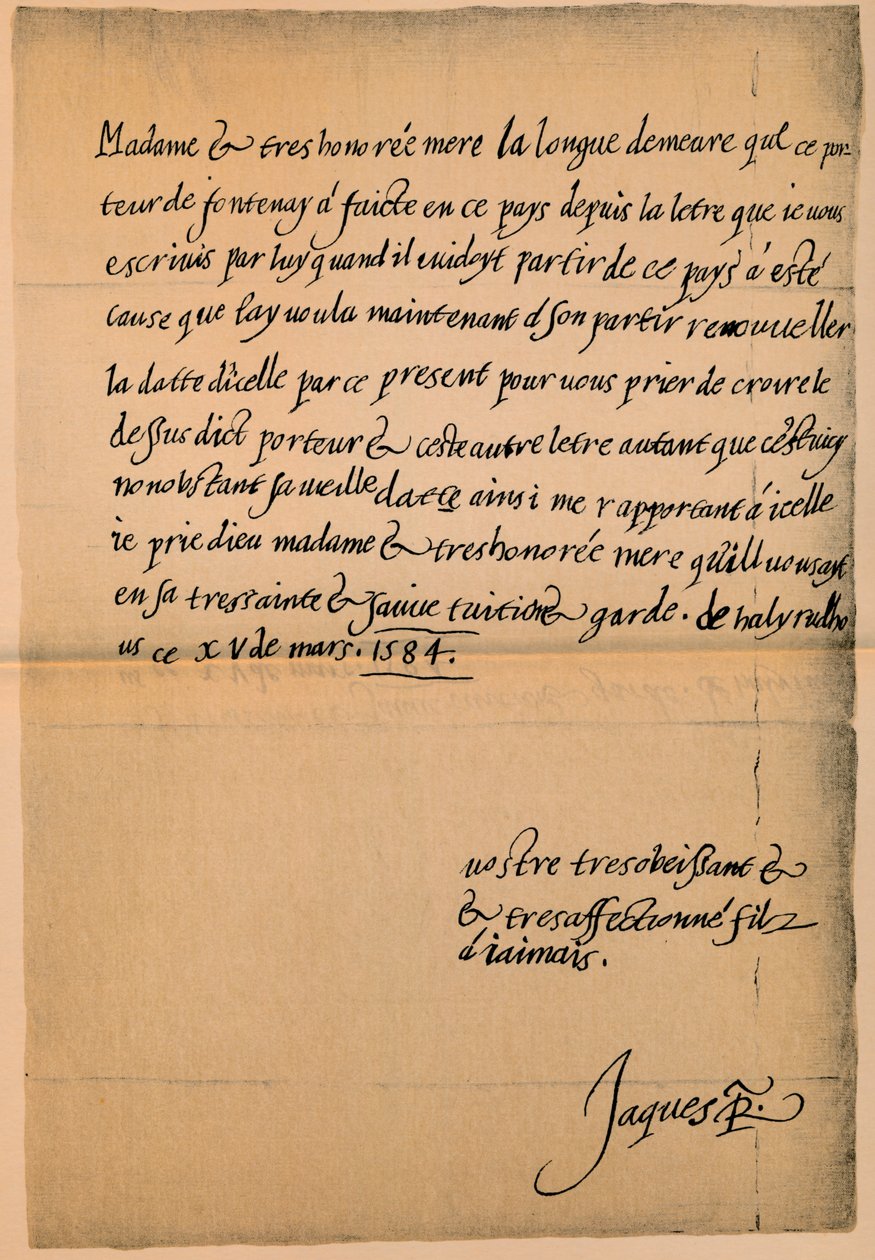 Madame & treshonorée mere la longue demeure que ce por-
teur de fontenay á faicte en ce pays depuis la letre que ie uous
escriuis par luy quand il cuidoyt partir de ce pays á esté
cause que iay uoulu maintenant a son partir renouueller
la datte dicelle par ce present pour uous prier de croire le
dessus dict porteur & ceste autre letre autant que
nonobstant sa uieille datte ainsi me rapportant á icelle
ie prie dieu madame & treshonorée mere quill uous ayt
en sa tressainte & sauue tuition & garde. de halyrudho
us ce xv de mars. 1584.
uostre tresobeissant &
& tresaffectionné filz
á iaimais.
Jaques R.